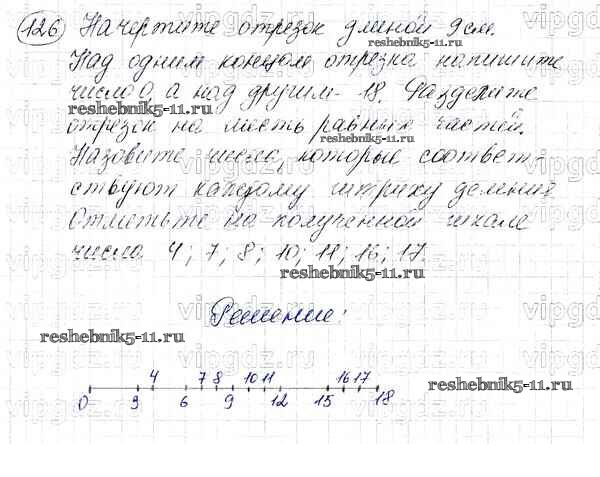 126 Начертите отрезок длиной 9 см.
reshebnik5-11.ru
Над одним концом отрезка напишите
число 0, а над другим - 18. Разделите
reshebnik5-11.ru
отрезок на шесть равных частей.
reshebnik5-11.ru
Назовите числа, которые соответ-
ствуют каждому штриху делений
Отметьте на полученной шкале
числа 4; 7; 8; 10; 11; 16; 17.
reshebnik5-11.ru
Решение:
reshebnik5-11.ru
4 7 8 10 11 16 17
reshebnik5-11.ru
0 3 6 9 12 15 18